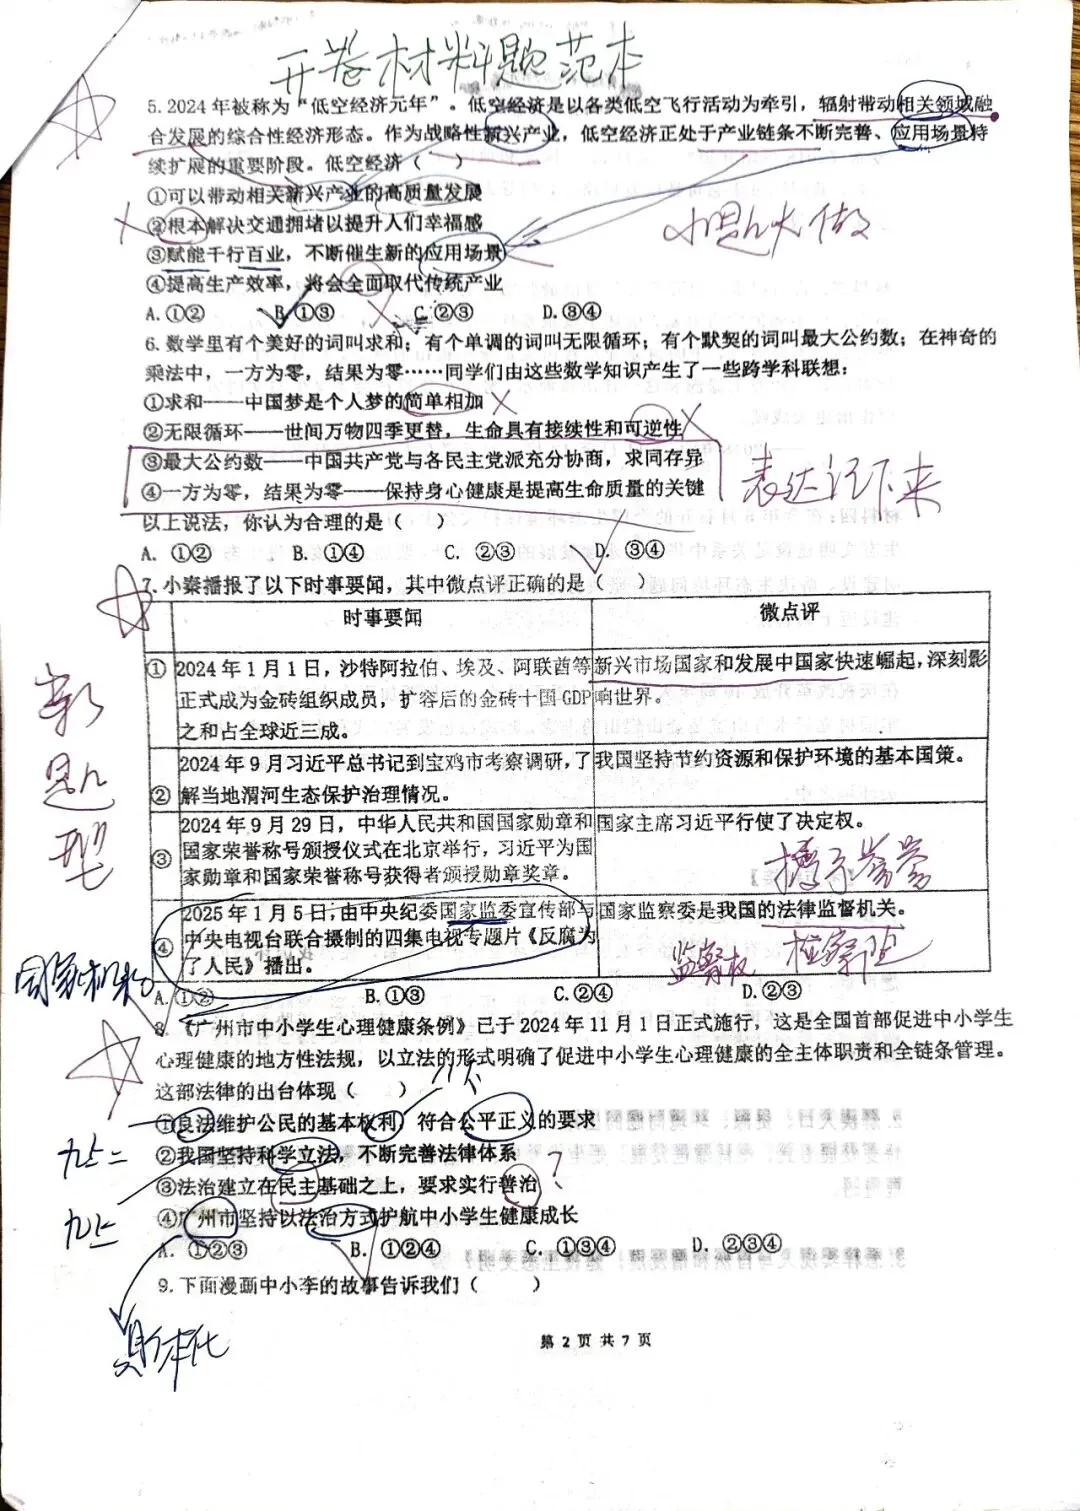 开卷材料题范本
5.2024年被称为“低空经济元年”。低空经济是以各类低空飞行活动为牵引，辐射带动相关领域融
合发展的综合性经济形态。作为战略性新兴产业，低空经济正处于产业链条不断完善、应用场景持
续扩展的重要阶段。低空经济（ ）
①可以带动相关新兴产业的高质量发展
②根本解决交通拥堵以提升人们幸福感
小题大做
③赋能千行百业，不断催生新的应用场景
④提高生产效率，将会全面取代传统产业
A.①② B.①③ C.②③ D.③④
6.数学里有个美好的词叫求和；有个单调的词叫无限循环；有个默契的词叫最大公约数；在神奇的
乘法中，一方为零，结果为零……同学们由这些数学知识产生了一些跨学科联想：
①求和——中国梦是个人梦的简单相加
②无限循环——世间万物四季更替，生命具有接续性和可逆性
③最大公约数——中国共产党与各民主党派充分协商，求同存异
④一方为零，结果为零——保持身心健康是提高生命质量的关键
表达记下来
以上说法，你认为合理的是（ ）
A. ①② B. ①④ C. ②③ D. ③④
7.小秦播报了以下时事要闻，其中微点评正确的是（ ）
时事要闻 微点评
① 2024年1月1日，沙特阿拉伯、埃及、阿联酋等 新兴市场国家和发展中国家快速崛起，深刻影
正式成为金砖组织成员，扩容后的金砖十国GDP 响世界。
之和占全球近三成。
新题型
② 2024年9月习近平总书记到宝鸡市考察调研，了 我国坚持节约资源和保护环境的基本国策。
解当地渭河生态保护治理情况。
③ 2024年9月29日，中华人民共和国国家勋章和 国家主席习近平行使了决定权。
国家荣誉称号颁授仪式在北京举行，习近平为国
家勋章和国家荣誉称号获得者颁授勋章奖章。
授予荣誉
④ 2025年1月5日，由中央纪委国家监委宣传部与 国家监察委是我国的法律监督机关。
中央电视台联合摄制的四集电视专题片《反腐为
了人民》播出。
监察权 检察院
国家机构
A.①② B.①③ C.②④ D.②③
8.《广州市中小学生心理健康条例》已于2024年11月1日正式施行，这是全国首部促进中小学生
心理健康的地方性法规，以立法的形式明确了促进中小学生心理健康的全主体职责和全链条管理。
这部法律的出台体现（ ）
①良法维护公民的基本权利，符合公平正义的要求
②我国坚持科学立法，不断完善法律体系
九上二
③法治建立在民主基础之上，要求实行善治 ?
④广州市坚持以法治方式护航中小学生健康成长
九上
A. ①②③ B. ①②④ C. ①③④ D. ②③④
9.下面漫画中小李的故事告诉我们（ ）
具体化
第2页共7页